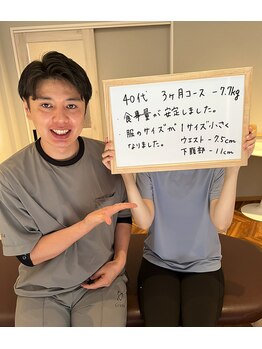 40代 3ヶ月コース -7.7kg
・食事量が安定しました。
・服のサイズが1サイズ小さく
なりました。 ウエスト -7.5cm
下腹部 -11cm